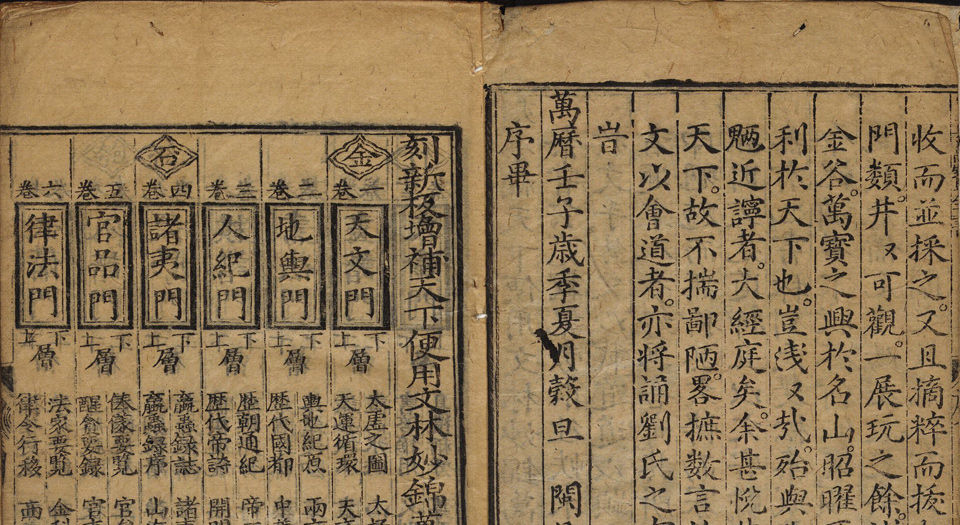 收而並採之。又且摘粹而援
門類。井々可觀。一展玩之餘。
金谷。萬寶之興於名山。昭曜
利於天下也。豈浅々㢤。殆與
近諄者。大經庭矣。余甚悅
天下。故不揣鄙陋。畧摭數言
文以會道者。亦將誦劉氏之
旹
萬曆壬子歲季夏月穀旦 閩
序畢
刻新板增補天下便用文林妙錦萬
金
一卷
天文門
下層上
太虛之圖 太
天運循環 天
二卷
地輿門
下層上
輿地紀原 兩
歷代國都 中
三卷
人紀門
下層上
歷朝通紀 帝
歷代帝詩 開
石
四卷
諸夷門
下層上
臝蟲錄誌 諸
臝蟲錄序 山
五卷
官品門
下層上
要覽 官
醒貪要錄 官
六卷
律法門
下層上
法家要覽 金
律令行移 西